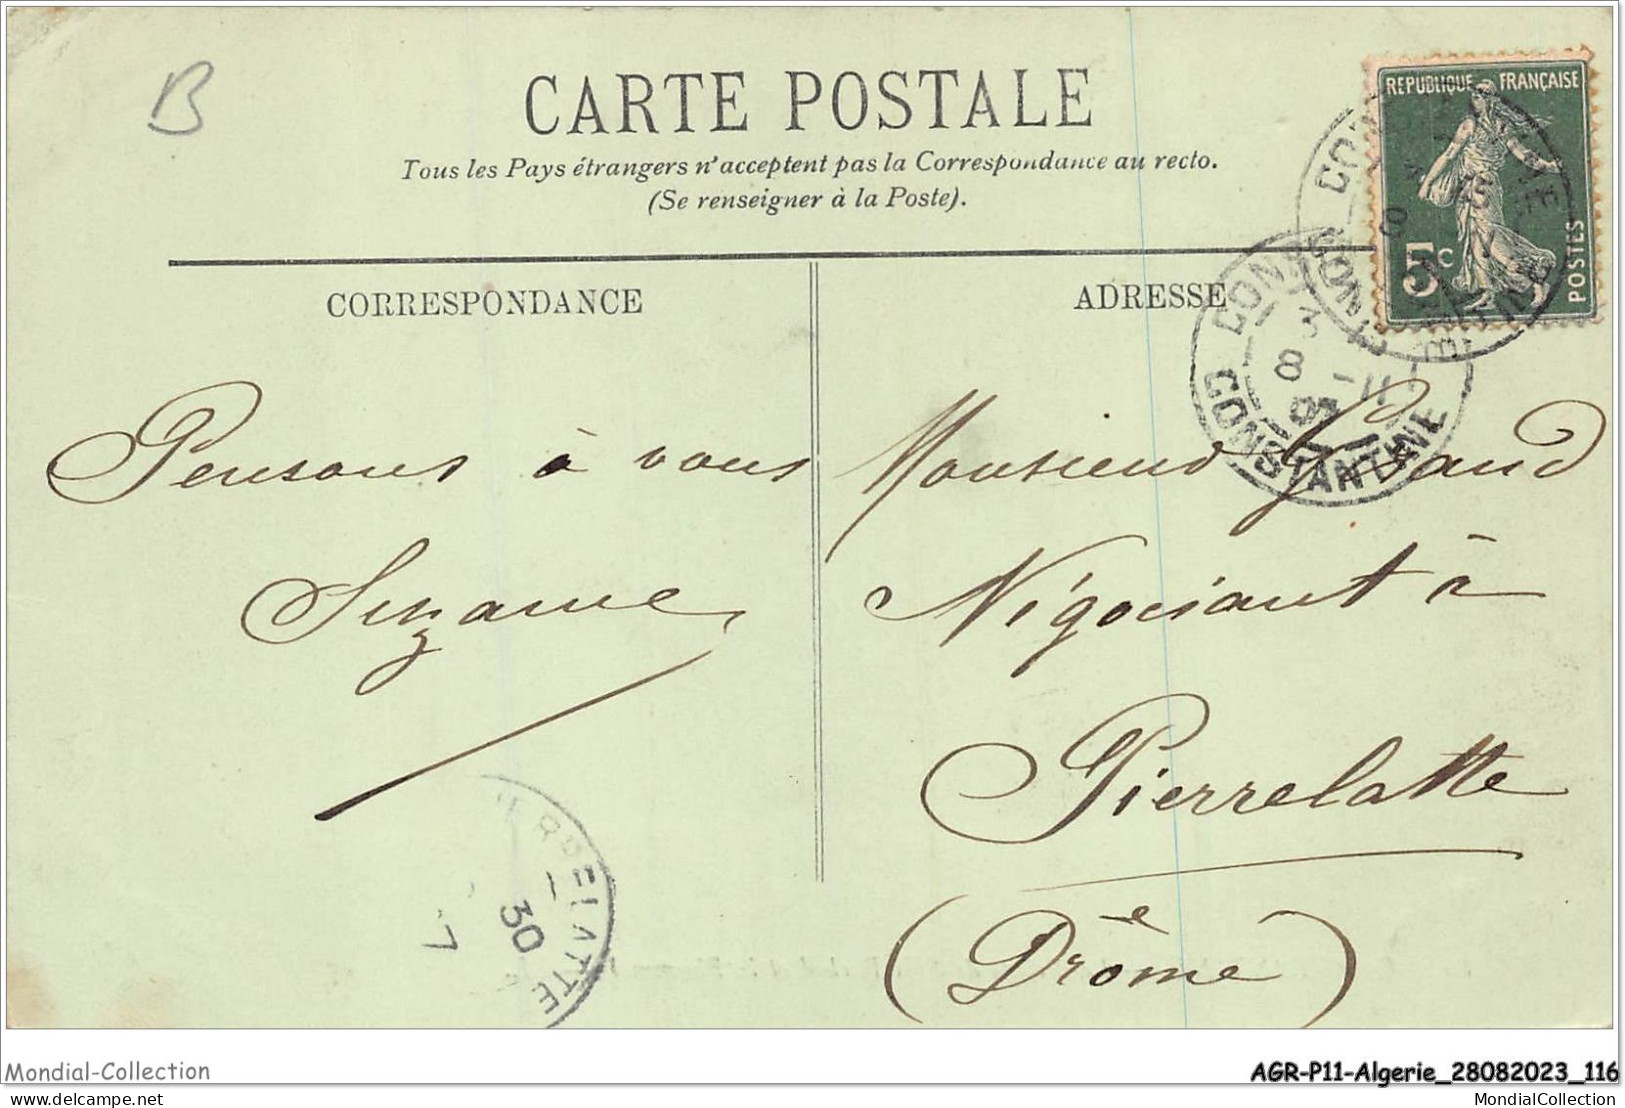 B
CARTE POSTALE
Tous les Pays étrangers n'acceptent pas la Correspondance au recto.
(Se renseigner à la Poste).
REPUBLIQUE FRANÇAISE
5c
POSTES
CONSTANTINE
CONSTANTINE
CORRESPONDANCE
ADRESSE
Pensons à vous
Suzanne
Monsieur
Négociant à
Pierrelatte
(Drôme)
PIERRELATTE
30
7
Mondial-Collection
AGR-P11-Algerie_28082023_116
MondialCollection
MondialCollection